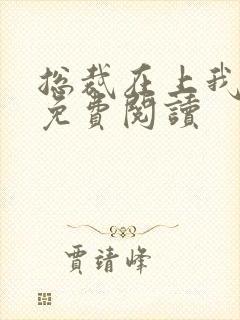 总裁在上我
免費閱讀
賈靖峰